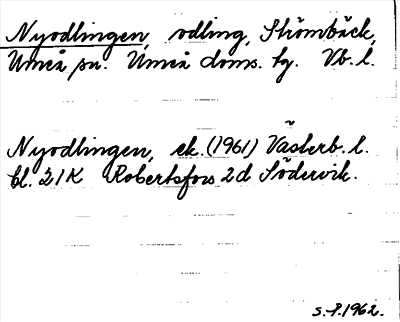 Nyodlingen, odling, Strömbäck,
Umeå sn. Umeå doms. tg. Vb. l.
Nyodlingen, ek. (1961) Västerb. l.
bl. 21K Robertsfors 2d Södervik.
S.P. 1962.